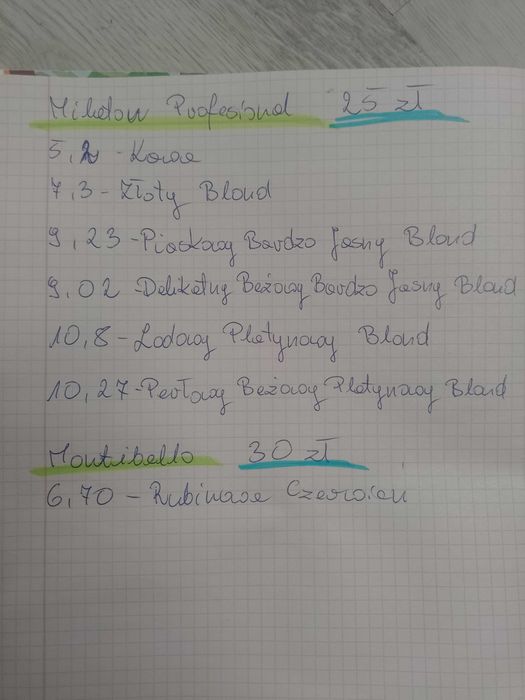 Mikelow Profesional 25 zł
5,2 - Kawa
7,3 - Złoty Blond
9,23 - Piaskowy Bardzo Jasny Blond
9,02 - Delikatny Beżowy Bardzo Jasny Blond
10,8 - Lodowy Platynowy Blond
10,27 - Perłowy Beżowy Platynowy Blond
Montibello 30 zł
6,70 - Rubinowa Czerwień